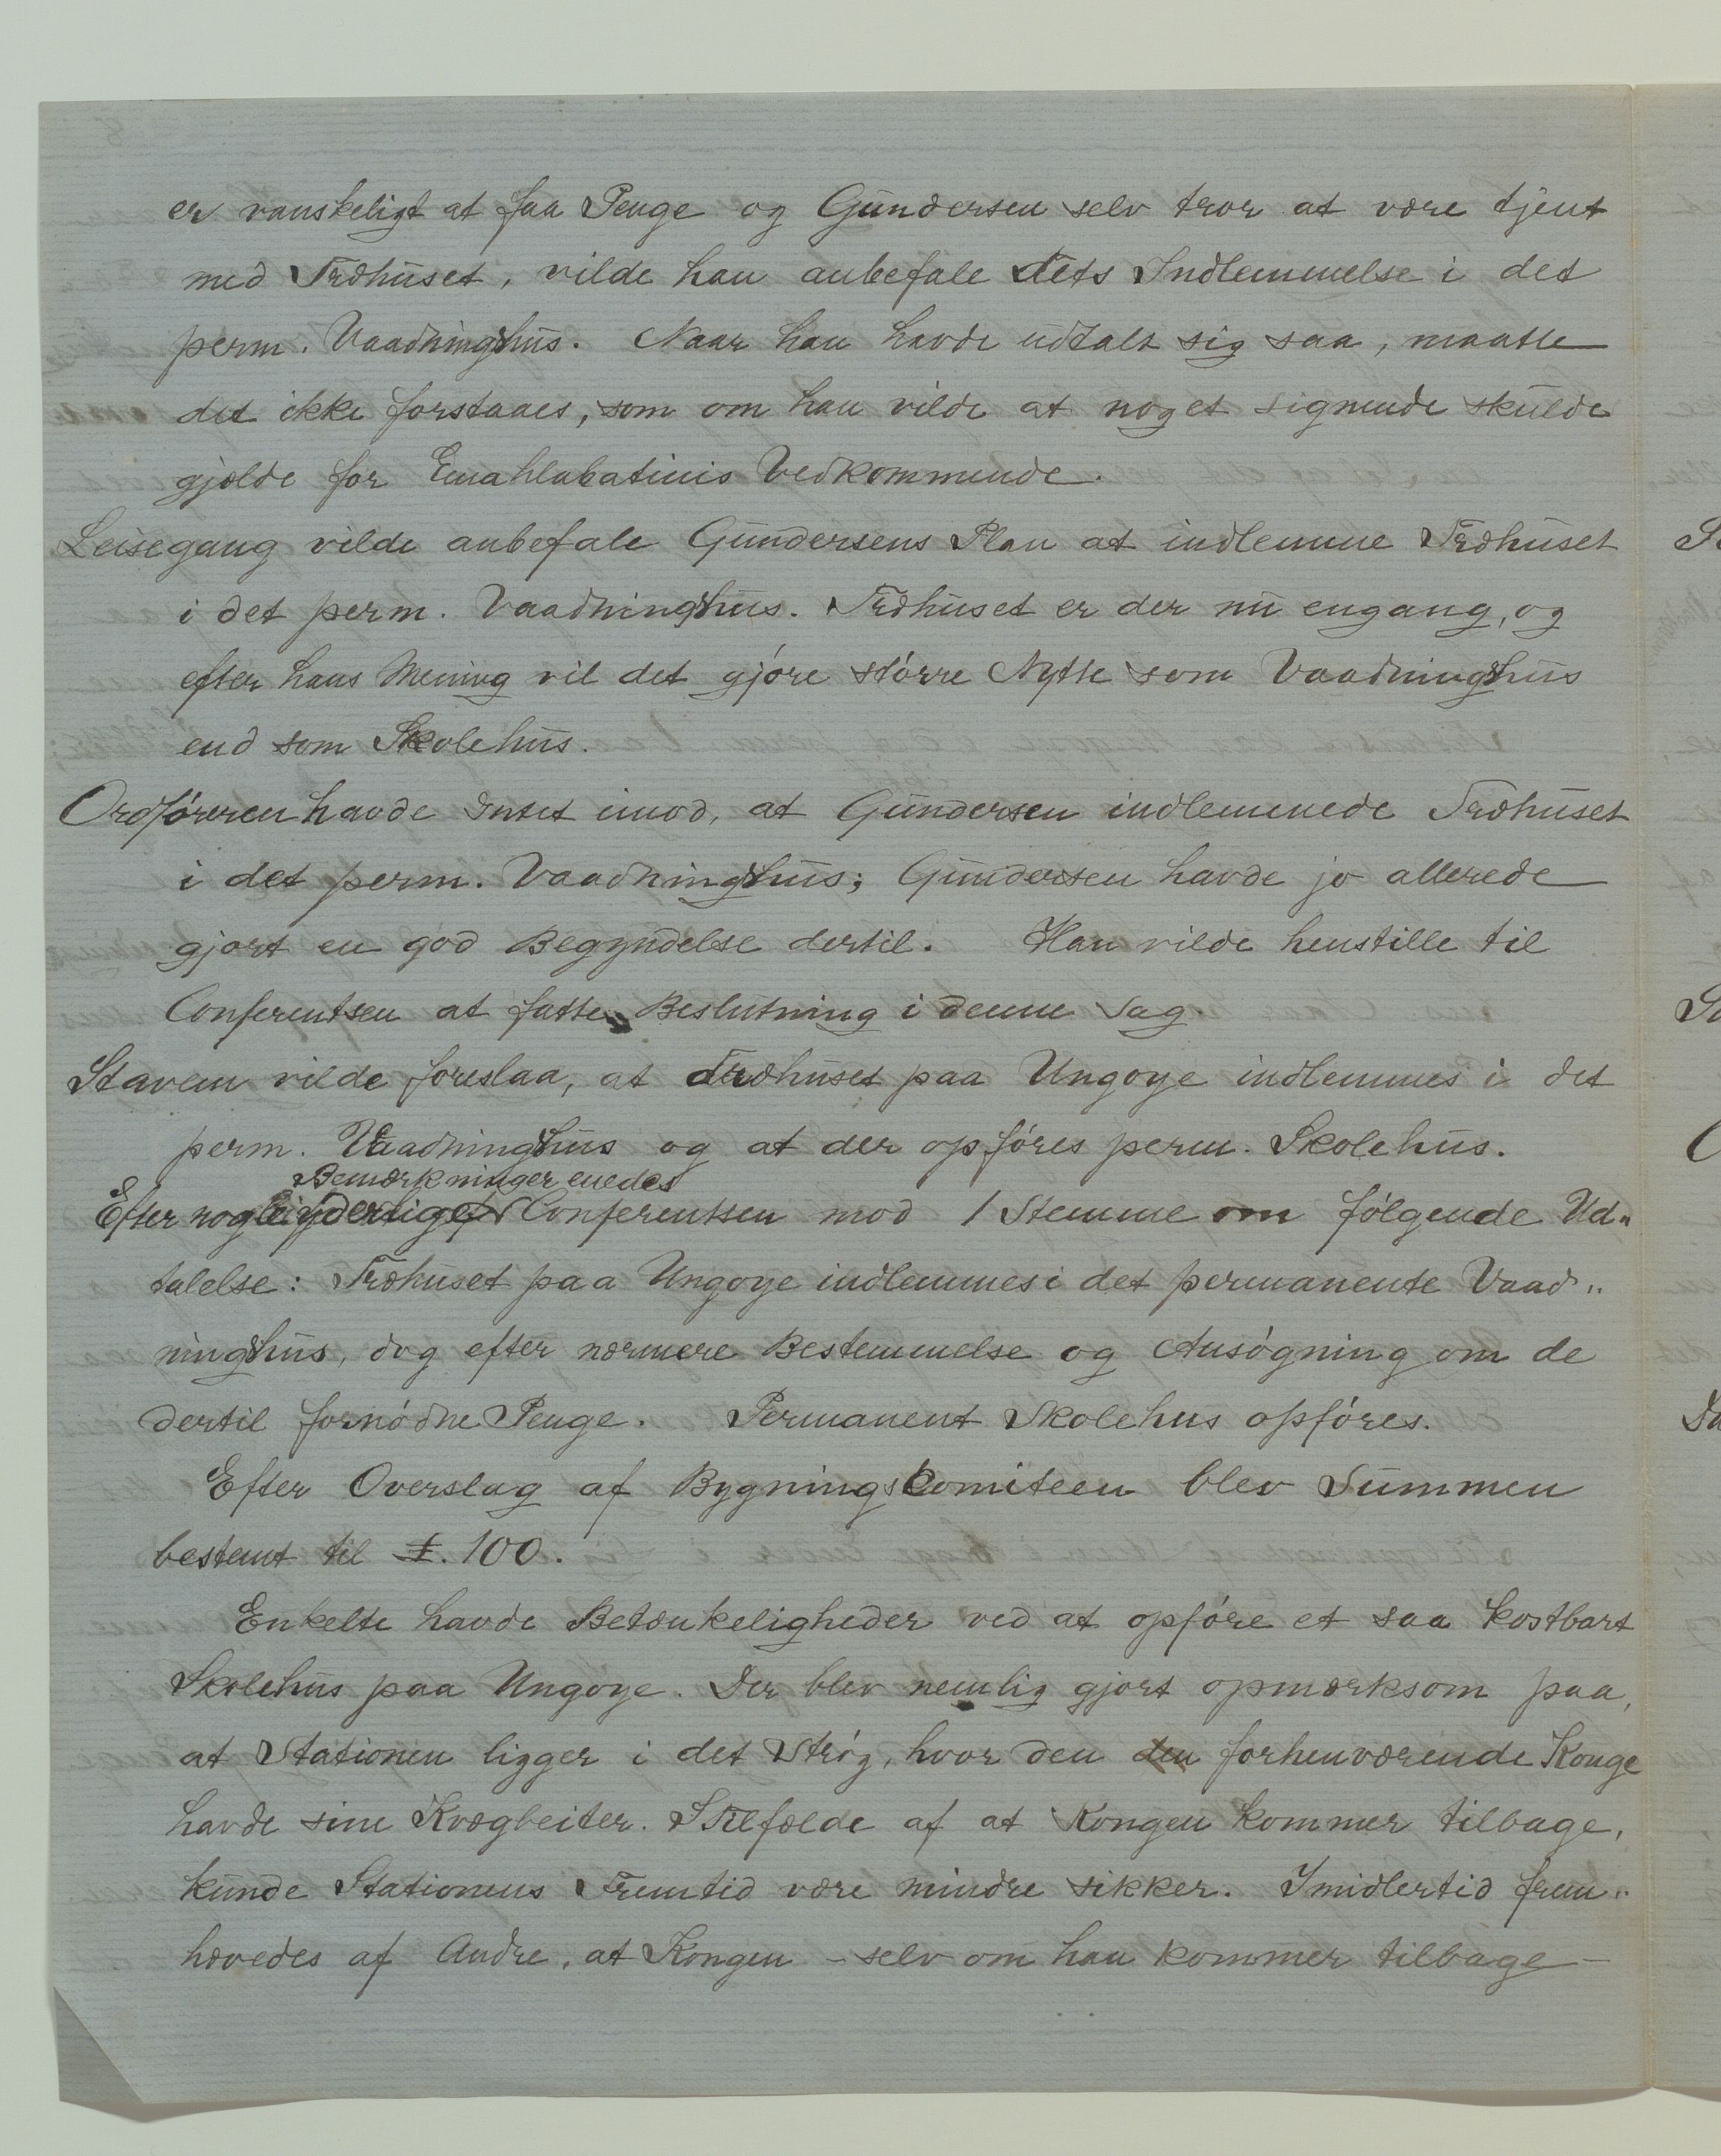 er vanskeligt at faa Penge og Gundersen selv tror at være tjent
med Træhuset, vilde han anbefale dets Indlemmelse i det
perm. Vaaningshus. Naar han havde udtalt sig saa, maatte
det ikke forstaaes, som om han vilde at noget lignende skulde
gjælde for Emahlabatinis Vedkommende.
Leisegang vilde anbefale Gundersens Plan at indlemme Træhuset
i det perm. Vaaningshus. Træhuset er der nu engang, og
efter hans Mening vil det gjøre større Nytte som Vaaningshus
end som Skolehus.
Ordføreren havde Intet imod, at Gundersen indlemmede Træhuset
i det perm. Vaaningshus; Gundersen havde jo allerede
gjort en god Begyndelse dertil. Han vilde henstille til
Conferentsen at fatte Beslutning i denne Sag.
Stavem vilde foreslaa, at Træhuset paa Ungoye indlemmes i det
perm. Vaaningshus og at der opføres perm. Skolehus.
Bemærkninger enedes
Efter nogle yderlige Conferentsen mod 1 Stemme om følgende Ud„
talelse: Træhuset paa Ungoye indlemmes i det permanente Vaad„
ningshus, dog efter nærmere Bestemmelse og Ansøgning om de
dertil fornødne Penge. Permanent Skolehus opføres.
Efter Overslag af Bygningskomiteen blev Summen
bestemt til £. 100.
Enkelte havde Betænkeligheder ved at opføre et saa kostbart
Skolehus paa Ungoye. Der blev nemlig gjort opmærksom paa,
at Stationen ligger i det Strøg, hvor den den forhenværende Konge
havde sine Kvægbeiter. I Tilfælde af at Kongen kommer tilbage,
kunde Stationens Fremtid være mindre sikker. Imidlertid frem„
hævedes af Andre, at Kongen – selv om han kommer tilbage –